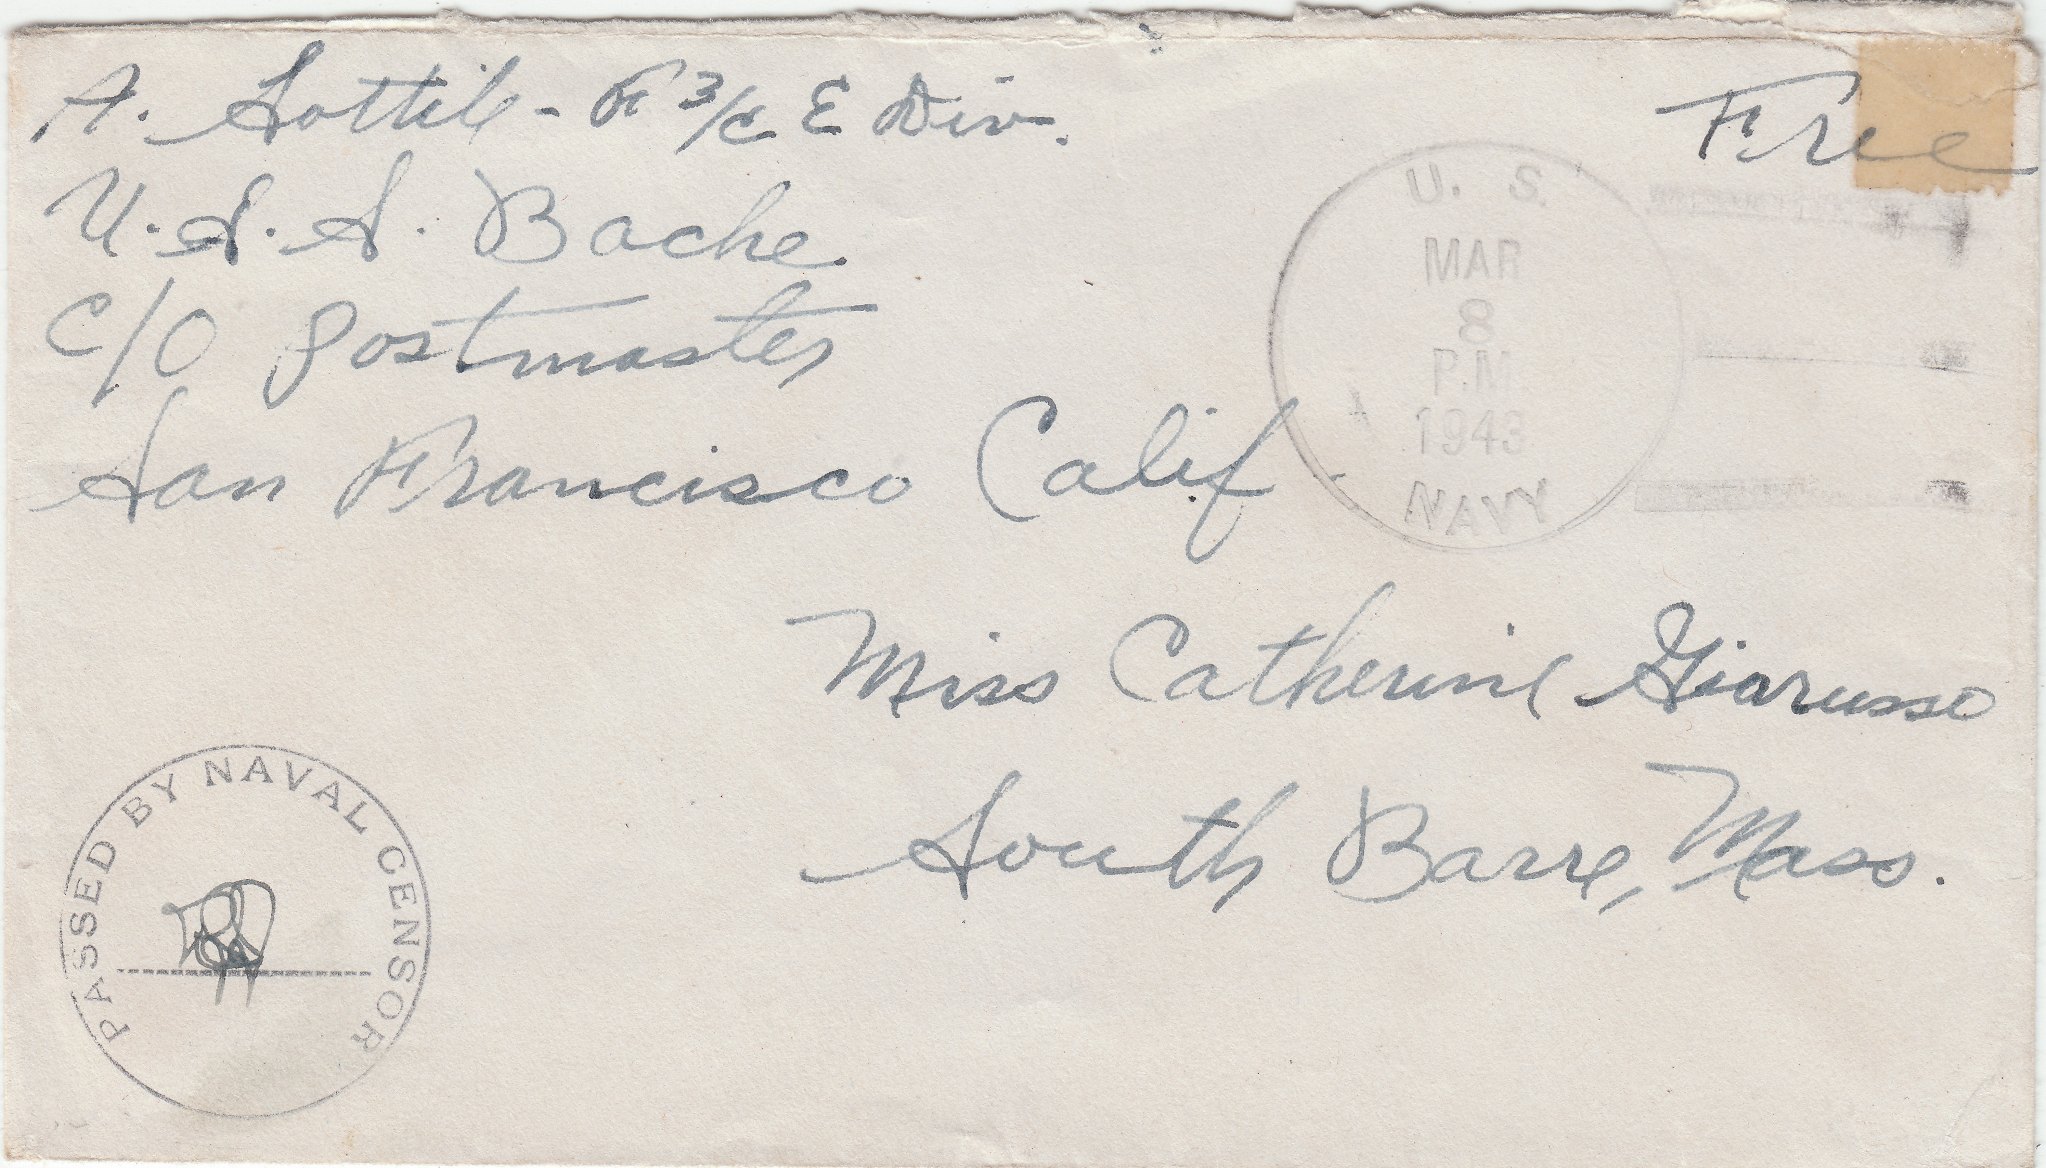 A. Sottile - F 3/c E Div.
Free
U.S.S. Bache
C/O Postmaster
San Francisco Calif.
U. S.
MAR
8
P.M.
1943
NAVY
Miss Catherine Giarusso
South Barre, Mass.
PASSED BY NAVAL CENSOR